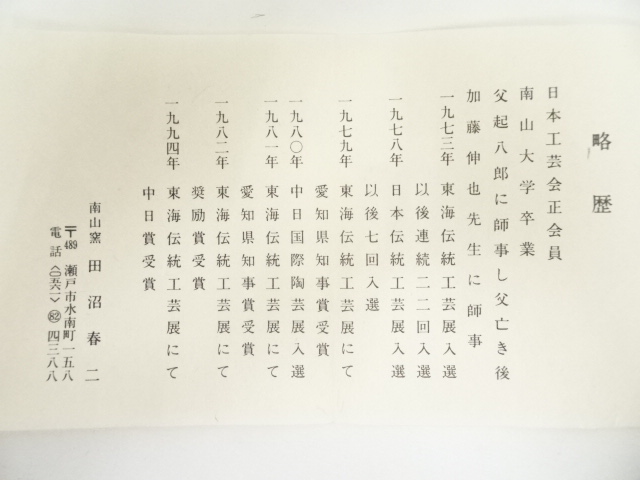 略歴
日本工芸会正会員
南山大学卒業
父起八郎に師事し父亡き後
加藤伸也先生に師事
一九七三年 東海伝統工芸展入選
以後連続二二回入選
一九七八年 日本伝統工芸展入選
以後七回入選
一九七九年 東海伝統工芸展にて
愛知県知事賞受賞
一九八〇年 中日国際陶芸展入選
一九八一年 東海伝統工芸展にて
愛知県知事賞受賞
一九八二年 東海伝統工芸展にて
奨励賞受賞
一九九四年 東海伝統工芸展にて
中日賞受賞
南山窯 田沼春二
〒489 瀬戸市水南町一五八
電話〈〇五六一〉㉜四三八八